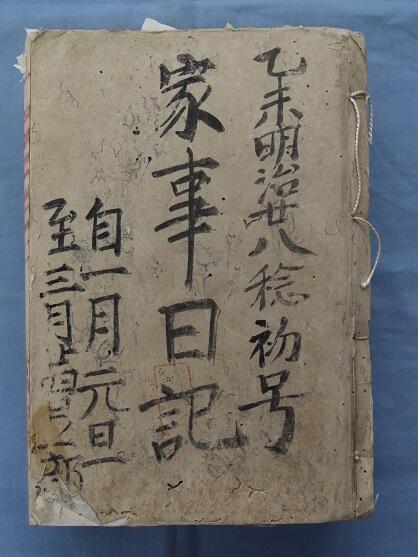 乙未明治廿八稔初号
家事日記
自一月元旦
至三月
部